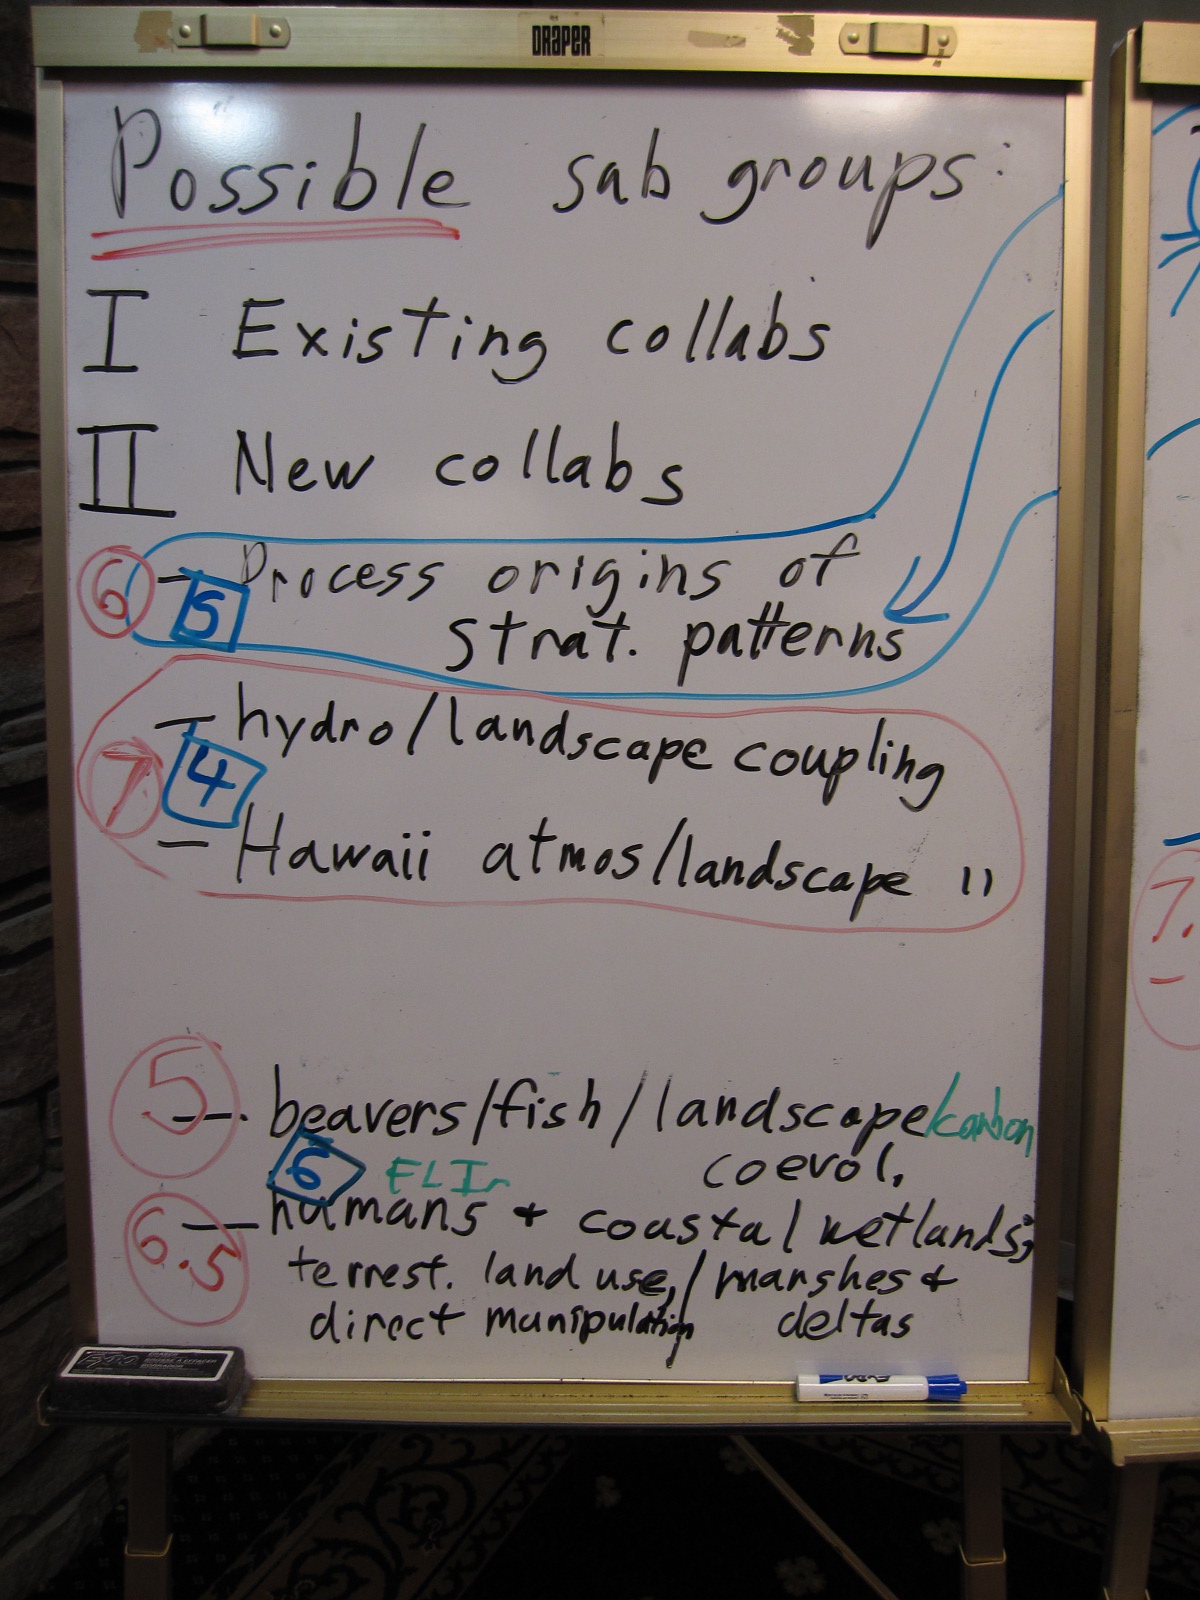 DRAPER
Possible sub groups:
I Existing collabs
II New collabs
6 – Process origins of
5 strat. patterns
– hydro/landscape coupling
7 4
– Hawaii atmos/landscape "
7.
–
5 – beavers/fish/landscape/carbon
coevol.
6
6.5 – humans + coastal wetlands;
terrest. land use,/marshes +
direct manipulation deltas